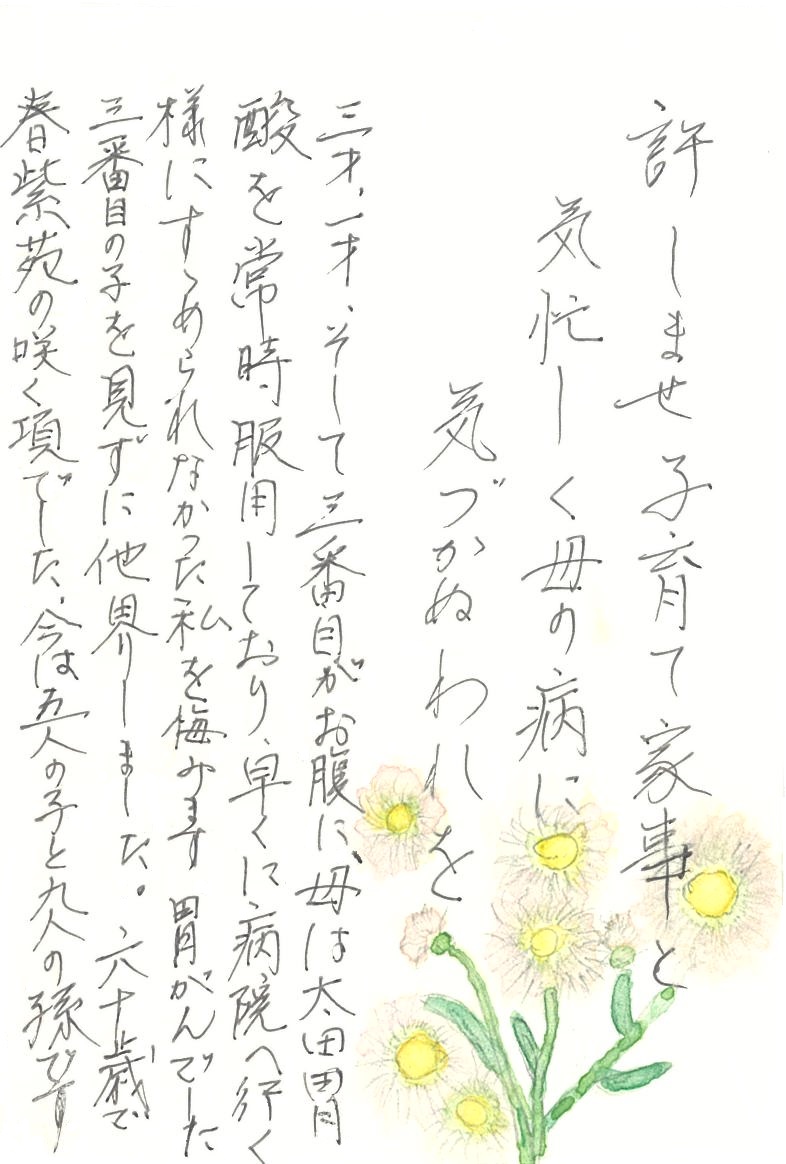 許しませ子育て家事と
気忙しく母の病に
気づかぬわれを
三才、一才、そして三番目がお腹に、母は太田胃
酸を常時服用しており、早くに病院へ行く
様にすゝめられなかった私を悔みます 胃がんでした
三番目の子を見ずに他界しました。六十歳で
春紫苑の咲く項でした、今は五人の子と九人の孫です